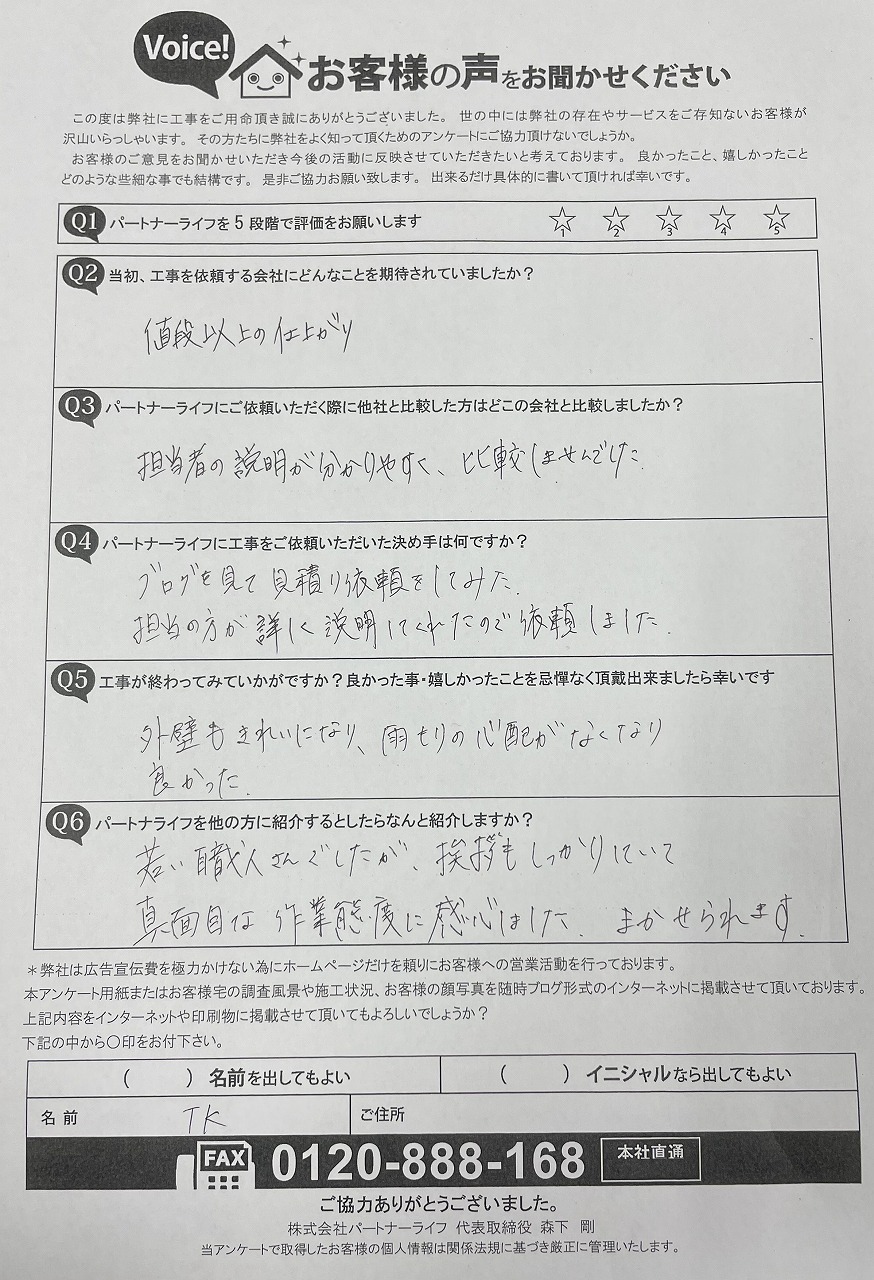 Voice!
お客様の声をお聞かせください
この度は弊社に工事をご用命頂き誠にありがとうございました。 世の中には弊社の存在やサービスをご存知ないお客様が
沢山いらっしゃいます。 その方たちに弊社をよく知って頂くためのアンケートにご協力頂けないでしょうか。
お客様のご意見をお聞かせいただき今後の活動に反映させていただきたいと考えております。 良かったこと、嬉しかったこと
どのような些細な事でも結構です。 是非ご協力お願い致します。 出来るだけ具体的に書いて頂ければ幸いです。
Q1 パートナーライフを5段階で評価をお願いします ☆1 ☆2 ☆3 ☆4 ☆5
Q2 当初、工事を依頼する会社にどんなことを期待されていましたか?
値段以上の仕上がり
Q3 パートナーライフにご依頼いただく際に他社と比較した方はどこの会社と比較しましたか?
担当者の説明が分かりやすく、比較しませんでした.
Q4 パートナーライフに工事をご依頼いただいた決め手は何ですか?
ブログを見て見積り依頼をしてみた.
担当の方が詳しく説明してくれたので依頼しました.
Q5 工事が終わってみていかがですか?良かった事・嬉しかったことを忌憚なく頂戴出来ましたら幸いです
外壁もきれいになり、雨もりの心配がなくなり
良かった.
Q6 パートナライフを他の方に紹介するとしたらなんと紹介しますか?
若い職人さんでしたが、挨拶もしっかりしていて
真面目な作業態度に感心しました. まかせられます.
*弊社は広告宣伝費を極力かけない為にホームページだけを頼りにお客様への営業活動を行っております。
本アンケート用紙またはお客様宅の調査風景や施工状況、お客様の顔写真を随時ブログ形式のインターネットに掲載させて頂いております。
上記内容をインターネットや印刷物に掲載させて頂いてもよろしいでしょうか?
下記の中から〇印をお付下さい。
( ) 名前を出してもよい ( ) イニシャルなら出してもよい
名前 TK ご住所
FAX 0120-888-168 本社直通
ご協力ありがとうございました。
株式会社パートナーライフ 代表取締役 森下 剛
当アンケートで取得したお客様の個人情報は関係法規に基づき厳正に管理いたします。